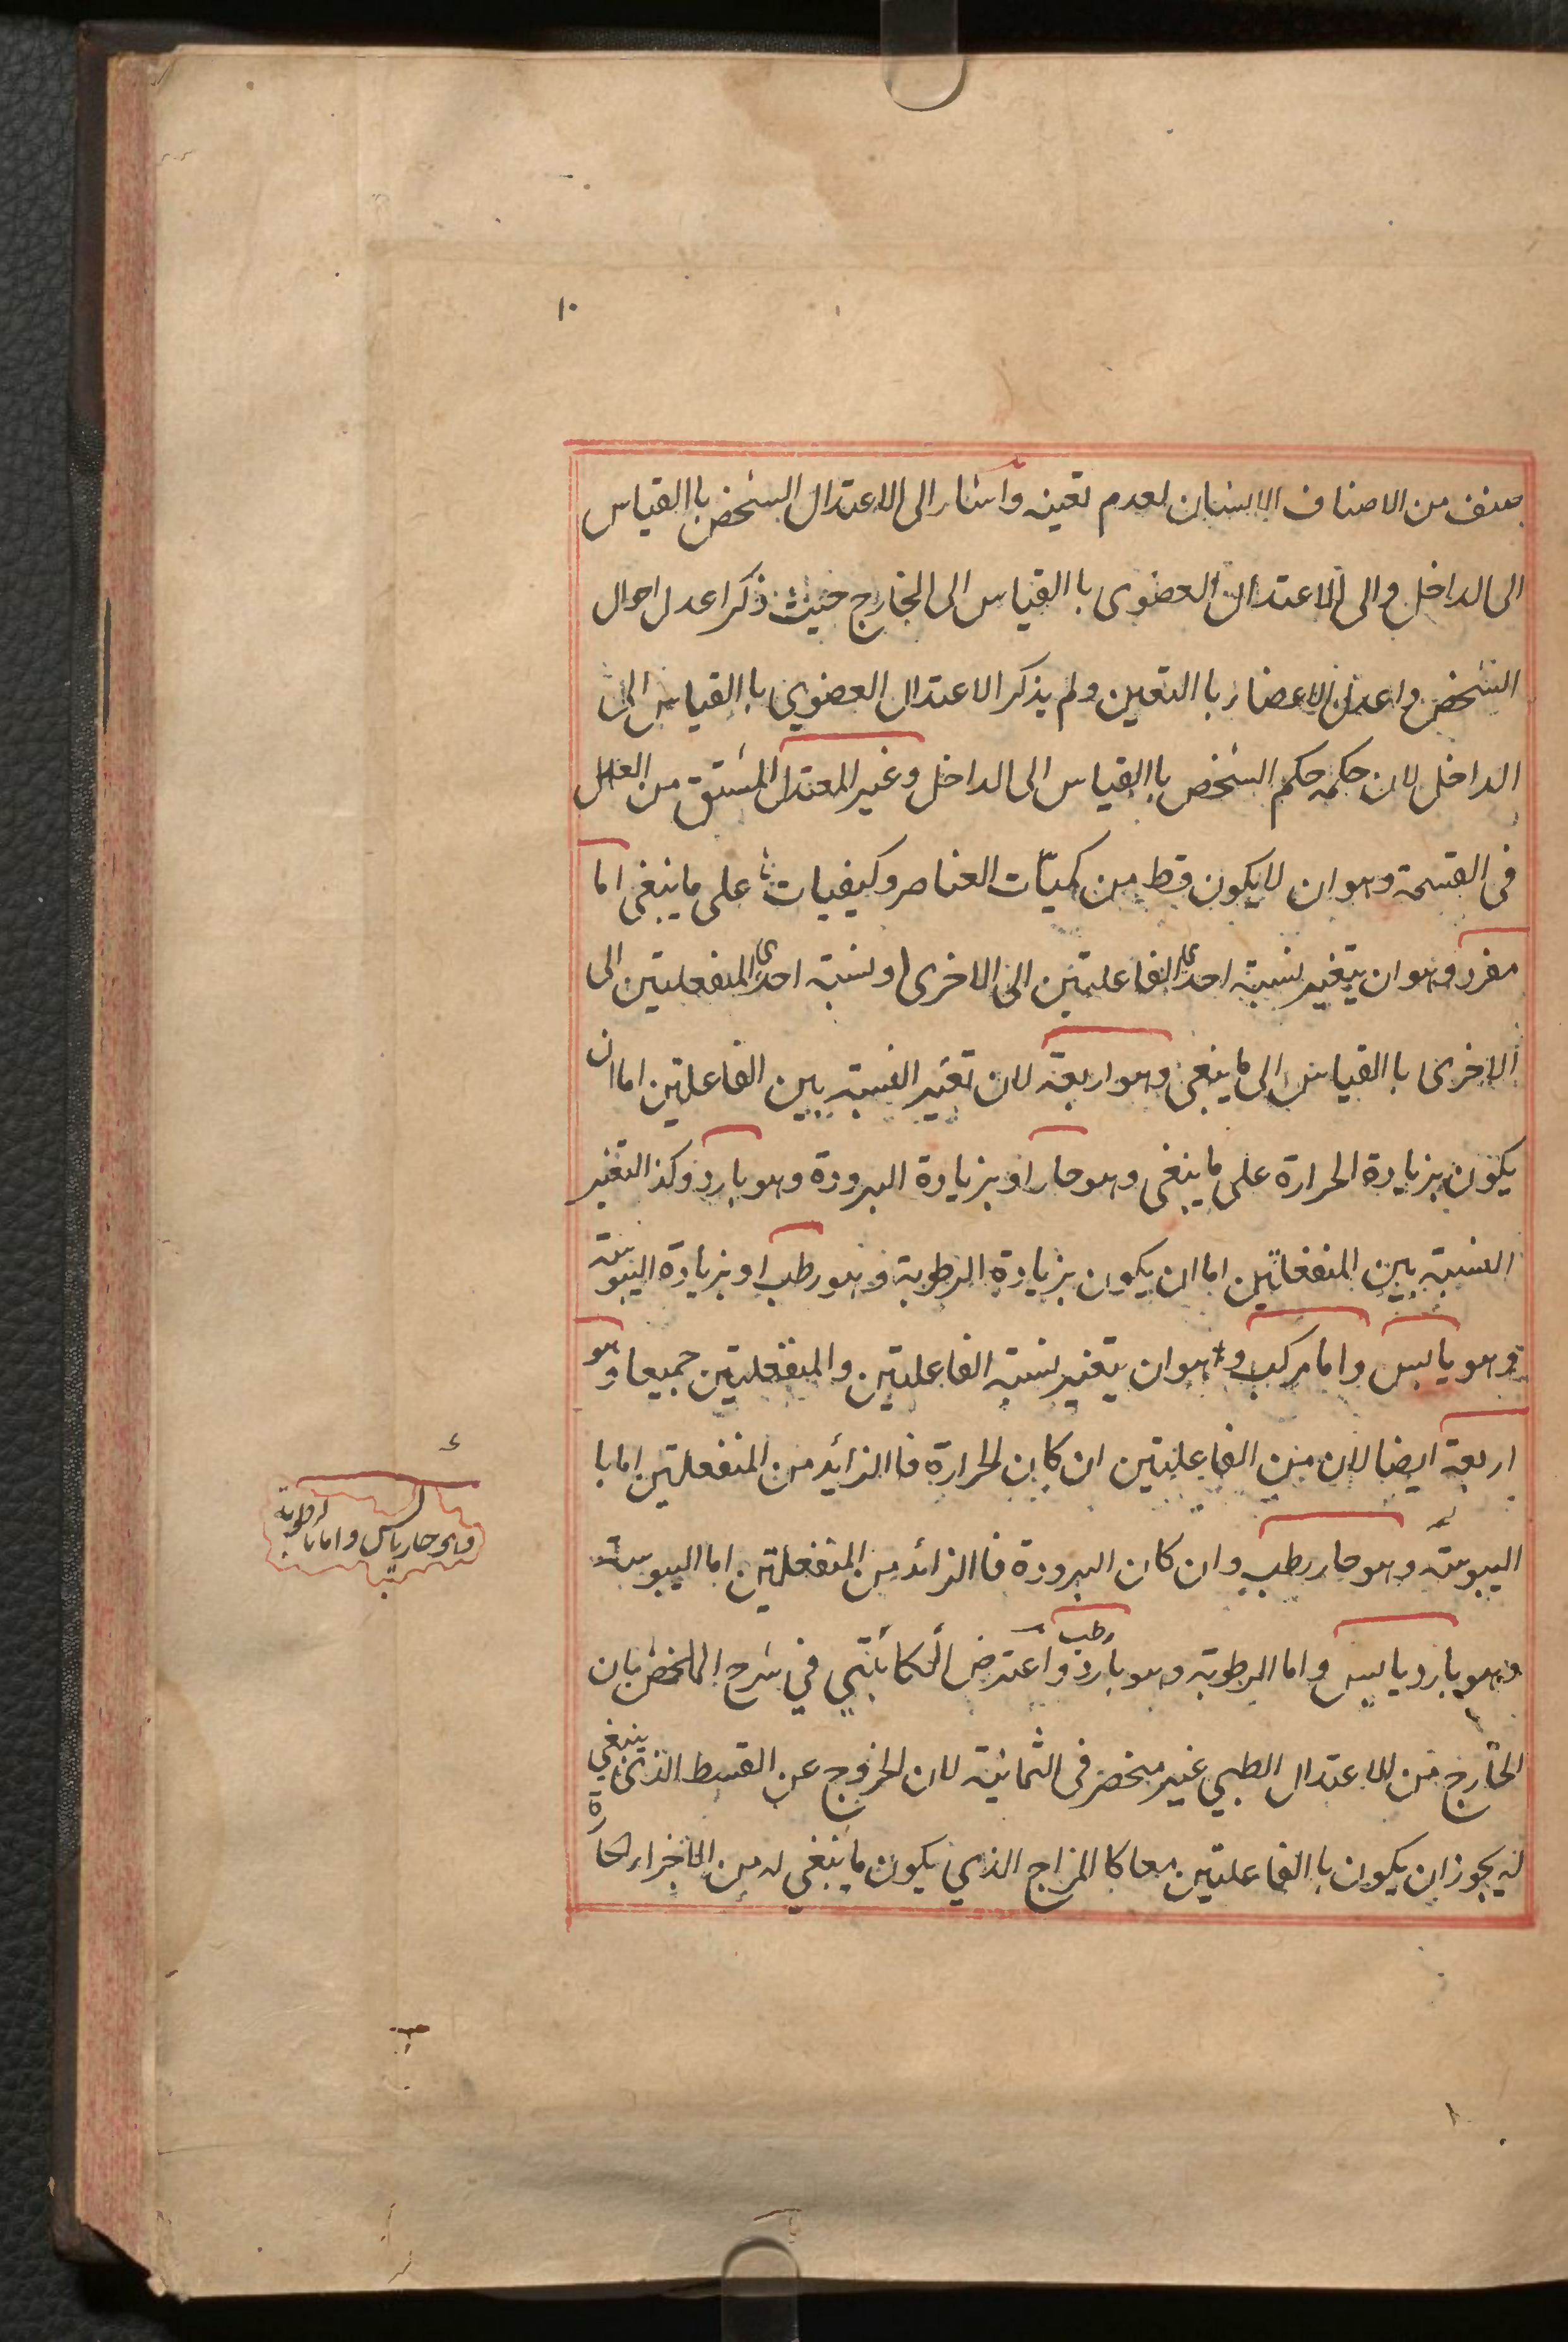 ١٠
صنف من الاصناف الانسان لعدم تعينه واشار الى الاعتدال الشخص باالقياس
الى الداخل والى الاعتدال العضوى باالقياس الى الخارج حيث ذكر اعدل احوال
الشخص واعدل الاعضاء باالتعين ولم يذكر الاعتدال العضوي باالقياس الى
الداخل لان حكمه حكم الشخص باالقياس الى الداخل وغير المعتدل المشتق من العدل
فى القسمة وهو ان لا يكون قسط من كميّات العناصر وكيفياتها على ما ينبغى اما
مفرد وهو ان يتغير نسبة احدى الفاعلتين الى الاخرى او نسبة احدى المنفعلتين الى
الاخرى باالقياس الى ما ينبغى وهو اربعة لان تغير النسبة بين الفاعلتين اما ان
يكون بزيادة الحرارة على ما ينبغى وهو حار او بزيادة البرودة وهو بارد وكذا التغير
النسبة بين المنفعلتين اما ان يكون بزيادة الرطوبة وهو رطب او بزيادة اليبوسة
وهو يابس واما مركب وهو ان يتغير نسبة الفاعلتين والمنفعلتين جميعا وهو
اربعة ايضا لان من الفاعلتين ان كان الحرارة فاالزائد من المنفعلتين اما با
اليبوسة وهو حار رطب وان كان البرودة فاالزائد من المنفعلتين اما اليبوسة
وهو حار يابس واما بالرطوبة
وهو بارد يابس واما الرطوبة وهو بارد رطب واعترض الكاتبي في شرح الملخص بان
الخارج من الاعتدال الطبي غير منحصر فى الثمانية لان الخروج عن القسط الذى ينبغي
له يجوز ان يكون باالفاعلتين معا كا المزاج الذي يكون ما ينبغي له من الاجزاء الحارة